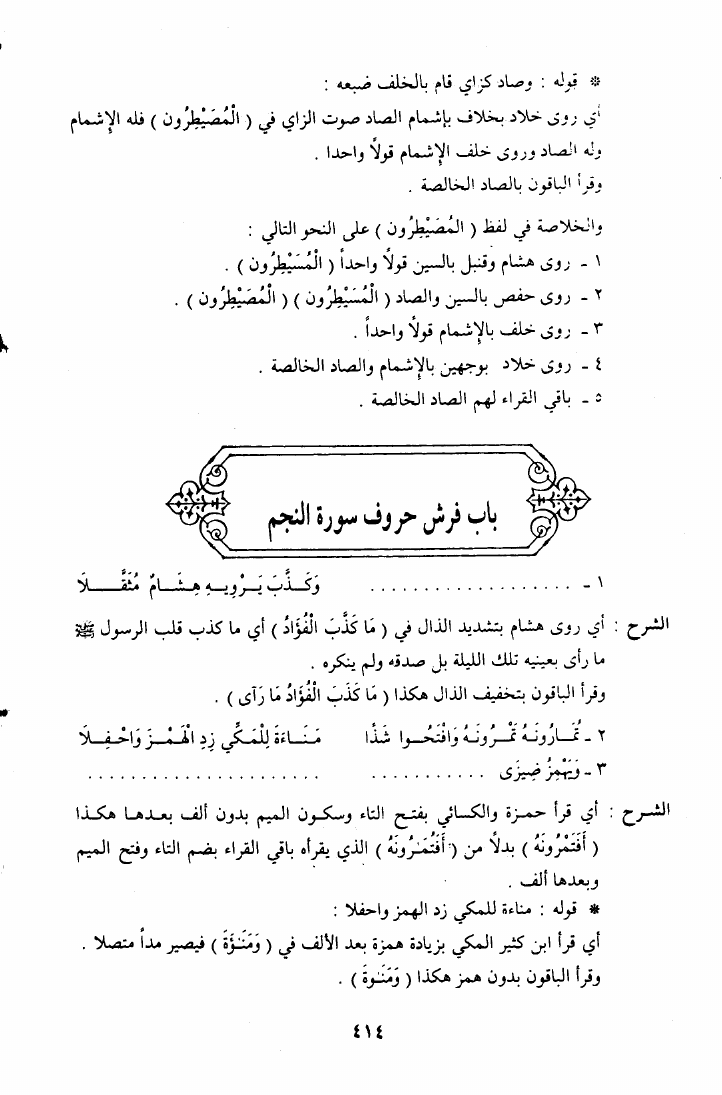 * قوله : وصاد كزاي قام بالخلف ضبعه :
أي روى خلاد بخلاف بإشمام الصاد صوت الزاي في ( الْمُصَيْطِرُون ) فله الإشمام
وله الصاد وروى خلف الإشمام قولاً واحدا .
وقرأ الباقون بالصاد الخالصة .
والخلاصة في لفظ ( المُصَيْطِرُون ) على النحو التالي :
١ - روى هشام وقنبل بالسين قولاً واحداً ( الْمُسَيْطِرُون ) .
٢ - روى حفص بالسين والصاد ( الْمُسَيْطِرُون ) ( الْمُصَيْطِرُون ) .
٣ - روى خلف بالإشمام قولاً واحداً .
٤ - روى خلاد بوجهين بالإشمام والصاد الخالصة .
٥ - باقي القراء لهم الصاد الخالصة .
باب فرش حروف سورة النجم
١ - .................... وَكَـذَّبَ يَـرْوِيـهِ هِـشَـامٌ مُثَقَّـلَا
الشرح : أي روى هشام بتشديد الذال في ( مَا كَذَّبَ الْفُؤَادُ ) أي ما كذب قلب الرسول ﷺ
ما رأى بعينيه تلك الليلة بل صدقه ولم ينكره .
وقرأ الباقون بتخفيف الذال هكذا ( مَا كَذَبَ الْفُؤَادُ مَا رَآى ) .
٢ - تُمَـارُونَـهُ تَمْـرُونَـهُ وَافْتَحُـوا شَذًا مَنَـاءَةَ لِلْمَكِّي زِدِ الْهَمْـزَ وَاحْفِـلَا
٣ - وَيَهْمِزُ ضِيزَى ............ ......................
الشرح : أي قرأ حمزة والكسائي بفتح التاء وسكون الميم بدون ألف بعدها هكذا
( أَفَتَمْرُونَهُ ) بدلاً من ( أَفَتُمَـٰرُونَهُ ) الذي يقرأه باقي القراء بضم التاء وفتح الميم
وبعدها ألف .
* قوله : مناءة للمكي زد الهمز واحفلا :
أي قرأ ابن كثير المكي بزيادة همزة بعد الألف في ( وَمَنَـٰؤَةَ ) فيصير مداً متصلا .
وقرأ الباقون بدون همز هكذا ( وَمَنَـٰوةَ ) .
٤١٤